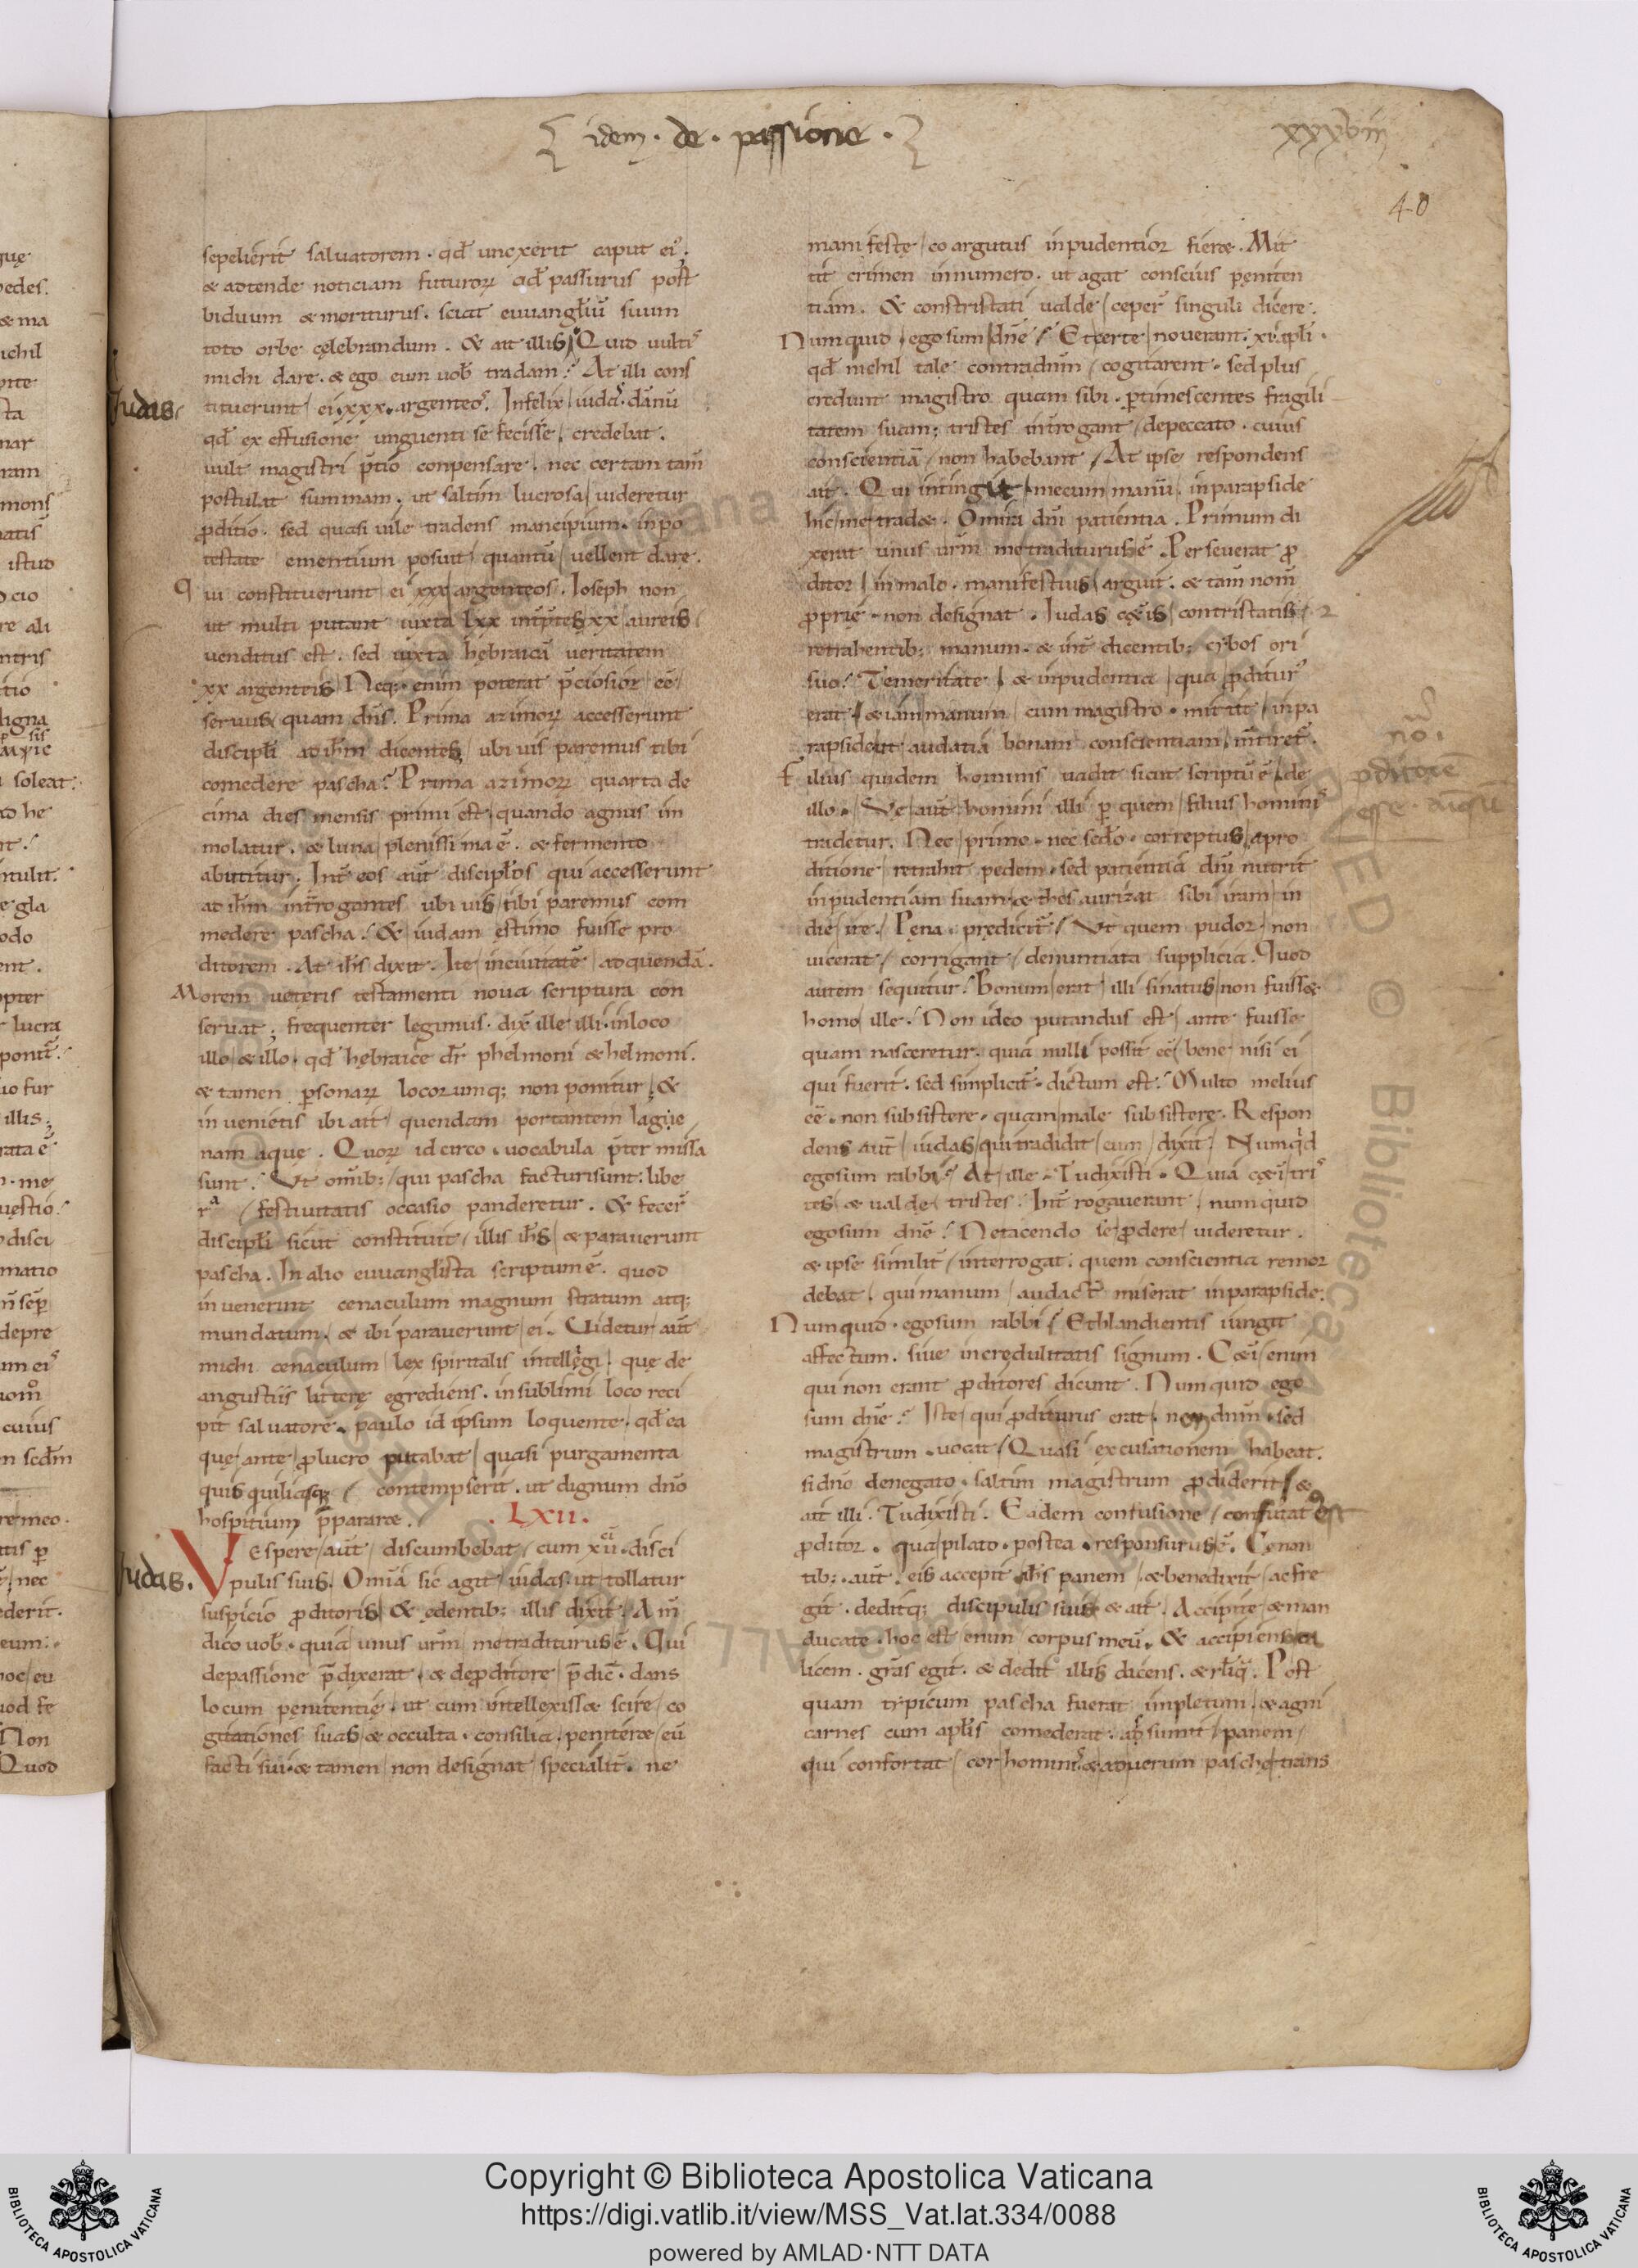 idem · de · passione ·
xxxviii
40
sepelierit saluatorem · qd̄ unxerit caput ei᾿.
& adtende noticiam futuroꝝ qd̄ passurus post
biduum & moriturus. sciat euuangliū suum
toto orbe cęlebrandum. & ait illis; Quid uultis
michi dare · & ego eum uob̄ tradam? At illi cons
Iudas.
tituerunt ei · xxx · argenteos. Infelix iudas · dānū
qd̄ ex effusione unguenti se fecisse credebat.
uult magistri p̄tio conpensare. nec certam tam̄
postulat summam. ut saltim lucrosa uideretur
ꝓditio. sed quasi uile tradens mancipium. in po
testate ementium posuit quantū uellent dare.
Qui constituerunt ei xxx argenteos. Ioseph non
ut multi putant iuxta lxx int̄p̄tes xx aureis
uenditus est. sed iuxta hębraicā ueritatem
xx argenteis. Neq; enim poterat p̄ciosior eē
seruus quam dn̄s. Prima azimoꝝ accesserunt
discipli ad ihm̄ dicentes ubi uis paremus tibi
comedere pascha? Prima azimoꝝ quarta de
cima dies mensis primi est quando agnus im
molatur. & luna plenissima ē. & fermento
abutitur. Int̄ eos aut̄ disciplos qui accesserunt
ad ihm̄ int̄rogantes ubi uis tibi paremus com
medere pascha? & iudam ęstimo fuisse pro
ditorem. At ihs̄ dixit. Ite in ciuitatē ad quendā.
Morem ueteris testamenti noua scriptura con
seruat; frequenter legimus. dix̄ ille illi · in loco
illo & illo. qd̄ hębraice dr̄ phelmoni & helmoni.
& tamen ꝑsonaꝝ locorumq; non ponitur &
inuenietis ibi ait quendam portantem lague
nam aquę. Quoꝝ idcirco uocabula p̄ter missa
sunt. Ut omīb; qui pascha facturi sunt. libe
ra festiuitatis occasio panderetur. & fecer̄
discipli sicut constituit illis ihs̄ & parauerunt
pascha. In alio euuanglista scriptum ē. quod
inuenerunt cenaculum magnum stratum atq;
mundatum. & ibi parauerunt ei. Uidetur aut̄
michi cenaculum lex spiritalis intellęgi. quę de
angustiis litterę egrediens. in sublimi loco reci
pit saluatorē. paulo id ipsum loquente. qd̄ ea
quę ante ꝓ lucro putabat quasi purgamenta
quisquiliasq; contempserit. ut dignum dn̄o
hospitium p̄parar&.
.LXII.
Vespere aut̄ discumbebat cum xii · disci
Iudas.
pulis suis. Omīa sic agit iudas. ut tollatur
suspicio ꝓditoris & edentib; illis dixit. Am̄
dico uob̄. quia unus ur̄m me traditurus ē. Qui
de passione p̄dixerat. & de ꝓditore p̄dic̄. dans
locum pęnitentię. ut cum intellexiss& scire co
gitationes suas & occulta consilia. penitęr& eū
facti sui. & tamen non designat specialit̄. ne
manifestę coargutus inpudentior fier&. Mit
tit crimen in numero. ut agat conscius pęniten
tiam. & constristati ualde ceper̄ singuli dicere.
Numquid ego sum dn̄e? Et certe nouerant. xi. apli.
qd̄ nichil tale contra dn̄m cogitarent. sed plus
credunt magistro quam sibi. ꝑtimescentes fragili
tatem suam; tristes int̄rogant de peccato. cuius
conscientiā non habebant. At ipse respondens
ait. Qui intingit mecum manū in parapside
hic me trad&. O mira dn̄i patientia. Primum di
xerat unus ur̄m me traditurus ē. Perseuerat ꝓ
ditor in malo. manifestius arguit. & tam̄ nom̄
ꝓprię non designat. Iudas cęt̄is contristatis
retrahentib; manum. & int̄dicentib; cybos ori
suo. Temeritate & inpudentia qua ꝓditurus
erat & iam manum cum magistro mittit in pa
rapside ut audatia bonam conscientiam m̄tiret̄.
Filius quidem hominis uadit sicut scriptū ē de
no.
illo. Ve aut̄ homini illi ꝑ quem filius hominis
tradetur. Nec primo. nec sedo. correptus a pro
ditione retrahit pedem. sed patientia dn̄i nutrit
inpudentiam suam & thesaurizat sibi iram in
die irę. Pęna prędicit̄. Ut quem pudor non
uicerat corrigant denuntiata supplicia. Quod
autem sequitur. Bonum erat illi si natus non fuiss&
homo ille. Non ideo putandus est ante fuisse
quam nasceretur. quia nulli possit eē bene nisi ei
qui fuerit. sed simplicit̄. dictum est. Multo melius
eē. non subsistere. quam male subsistere. Respon
dens aut̄ iudas qui tradidit eum dixit. Numqd
ego sum rabbi? At ille. Tu dixisti. Quia cęt̄i tris
tes & ualde tristes. Int̄rogauerant numquid
ego sum dn̄e? Ne tacendo se ꝓdere uideretur.
& ipse similit̄ interrogat. quem conscientia remor
debat. qui manum audact̄ miserat in parapside.
Numquid ego sum rabbi? Et blandientis iungit
affectum. siue incredulitatis signum. Cęt̄i enim
qui non erant ꝓditores dicunt. Numquid ego
sum dn̄e? Iste qui ꝓditurus erat. non dn̄m. sed
magistrum uocat. Quasi excusationem habeat.
si dn̄o denegato. saltim magistrum ꝓdiderit. &
ait illi. Tu dixisti. Eadem confusione confutat est
ꝓditor. qua pilato. postea. responsurus ē. Cenan
tib; aut̄. eis accepit ihs̄ panem & benedixit ac fre
git. deditq; discipulis suis & ait. Accipite & man
ducate. hoc est enim corpus meū. & accipiens ca
licem. gras̄ egit. & dedit illis dicens. & rliq̄. Post
quam typicum pascha fuerat impletum. & agni
carnes cum aplis comederat. assumit panem
qui confortat cor hominis. & ad uerum pasche trans
Copyright © Biblioteca Apostolica Vaticana
https://digi.vatlib.it/view/MSS_Vat.lat.334/0088
powered by AMLAD·NTT DATA
BIBLIOTECA APOSTOLICA VATICANA
BIBLIOTECA APOSTOLICA VATICANA